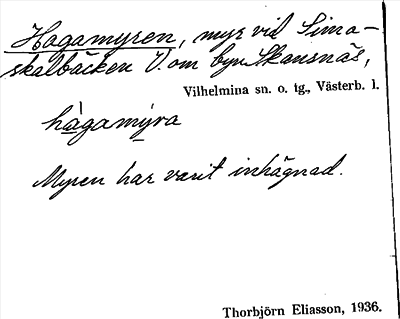 Hagamyren, myr vid Sima-
skalbäcken V. om byn Skansnäs,
Vilhelmina sn. o. tg., Västerb. l.
hàgamýra
Myren har varit inhägnad.
Thorbjörn Eliasson, 1936.